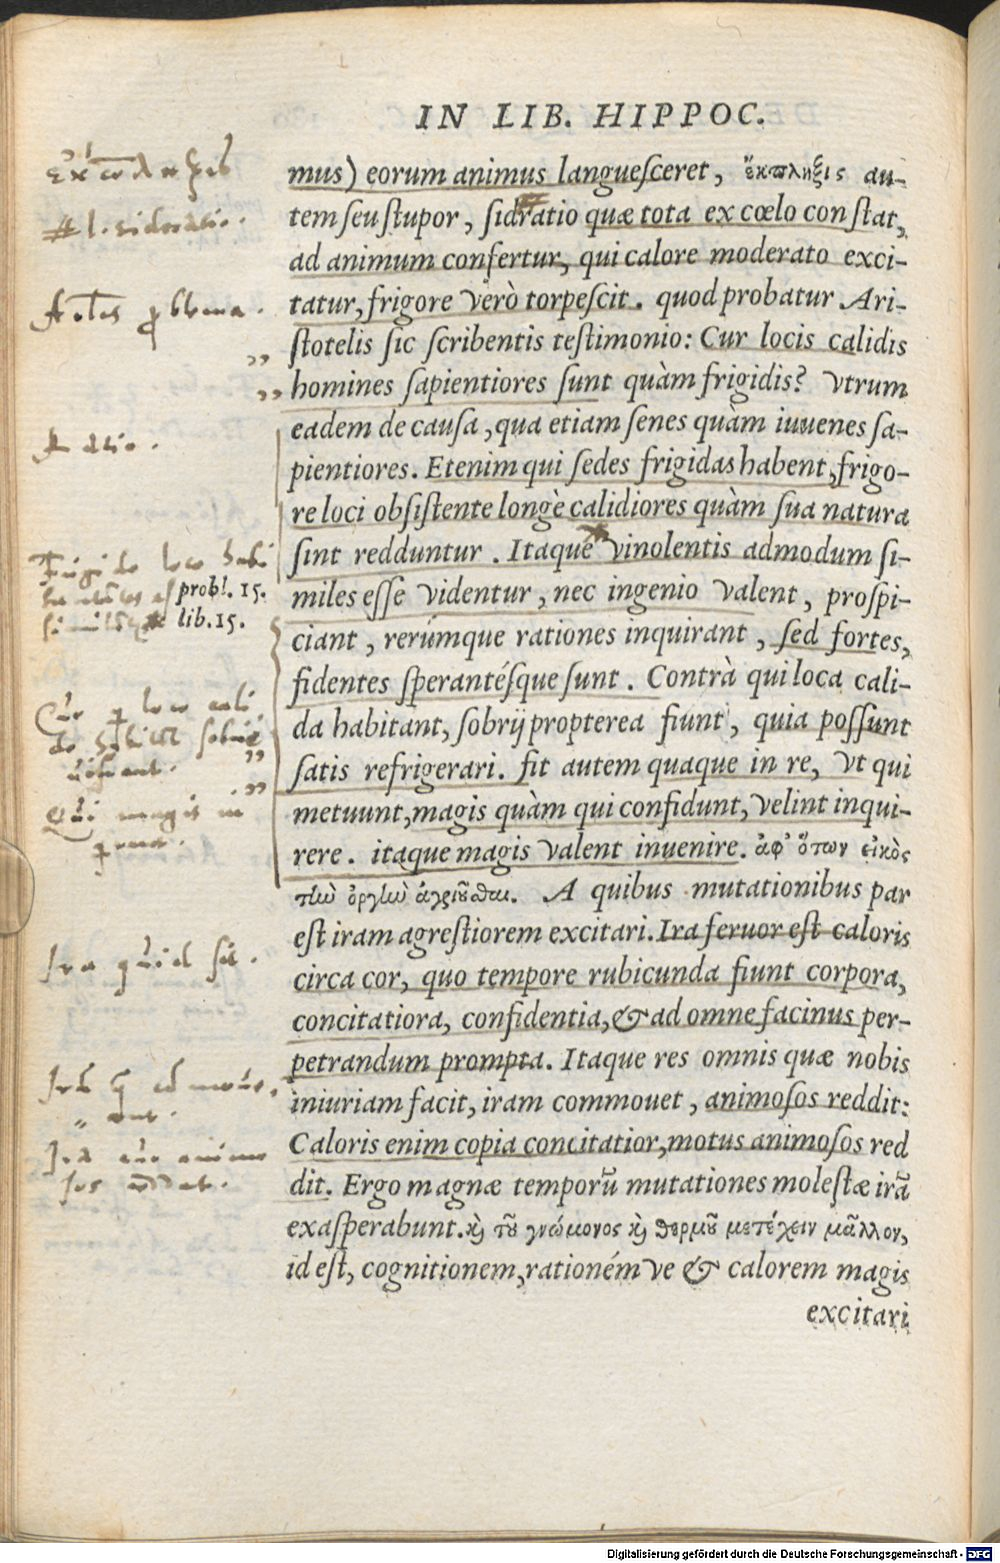 IN LIB. HIPPOC.
mus) eorum animus languesceret, ἔκπληξις au-
tem seu stupor, sidratio quæ tota ex cœlo constat,
ad animum confertur, qui calore moderato exci-
tatur, frigore verò torpescit. quod probatur Ari-
stotelis sic scribentis testimonio: Cur locis calidis
homines sapientiores sunt quàm frigidis? vtrum
eadem de causa, qua etiam senes quàm iuuenes sa-
pientiores. Etenim qui sedes frigidas habent, frigo-
re loci obsistente longè calidiores quàm sua natura
sint redduntur. Itaque vinolentis admodum si-
miles esse videntur, nec ingenio valent, prospi-
ciant, rerúmque rationes inquirant, sed fortes,
fidentes sperantésque sunt. Contrà qui loca cali-
da habitant, sobrij propterea fiunt, quia possunt
satis refrigerari. fit autem quaque in re, vt qui
metuunt, magis quàm qui confidunt, velint inqui-
rere. itaque magis valent inuenire. ἀφ' ὅτων εἰκὸς
τὴν ὀργὴν ἀγριοῦσθαι. A quibus mutationibus par
est iram agrestiorem excitari. Ira feruor est caloris
circa cor, quo tempore rubicunda fiunt corpora,
concitatiora, confidentia, & ad omne facinus per-
petrandum prompta. Itaque res omnis quæ nobis
iniuriam facit, iram commouet, animosos reddit:
Caloris enim copia concitatior, motus animosos red
dit. Ergo magnæ temporū mutationes molestæ irā
exasperabunt. καὶ τοῦ γνώμονος καὶ θερμοῦ μετέχειν μᾶλλον,
id est, cognitionem, rationém ve & calorem magis
excitari
probl. 15.
lib. 15.
# l. sideratio.
Ratio.
Ira quid sit.
Digitalisierung gefördert durch die Deutsche Forschungsgemeinschaft - DFG